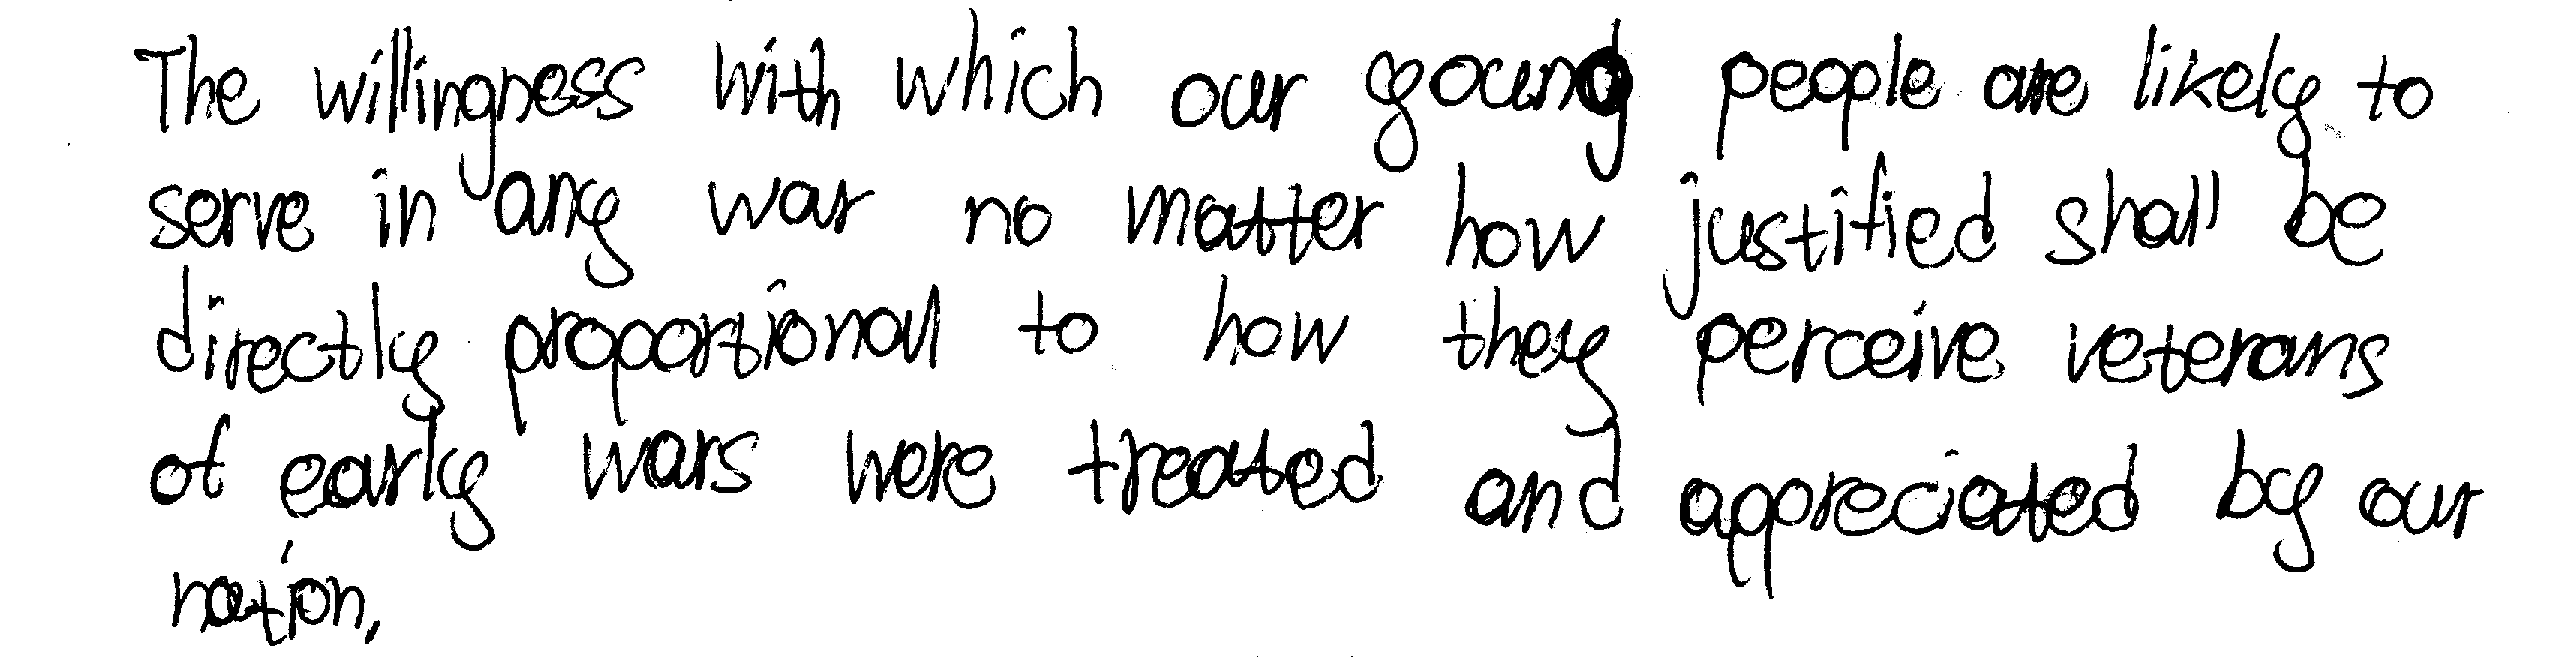 The willingness with which our young people are likely to
serve in any war no matter how justified shall be
directly proportional to how they perceive veterans
of early wars were treated and appreciated by our
nation,